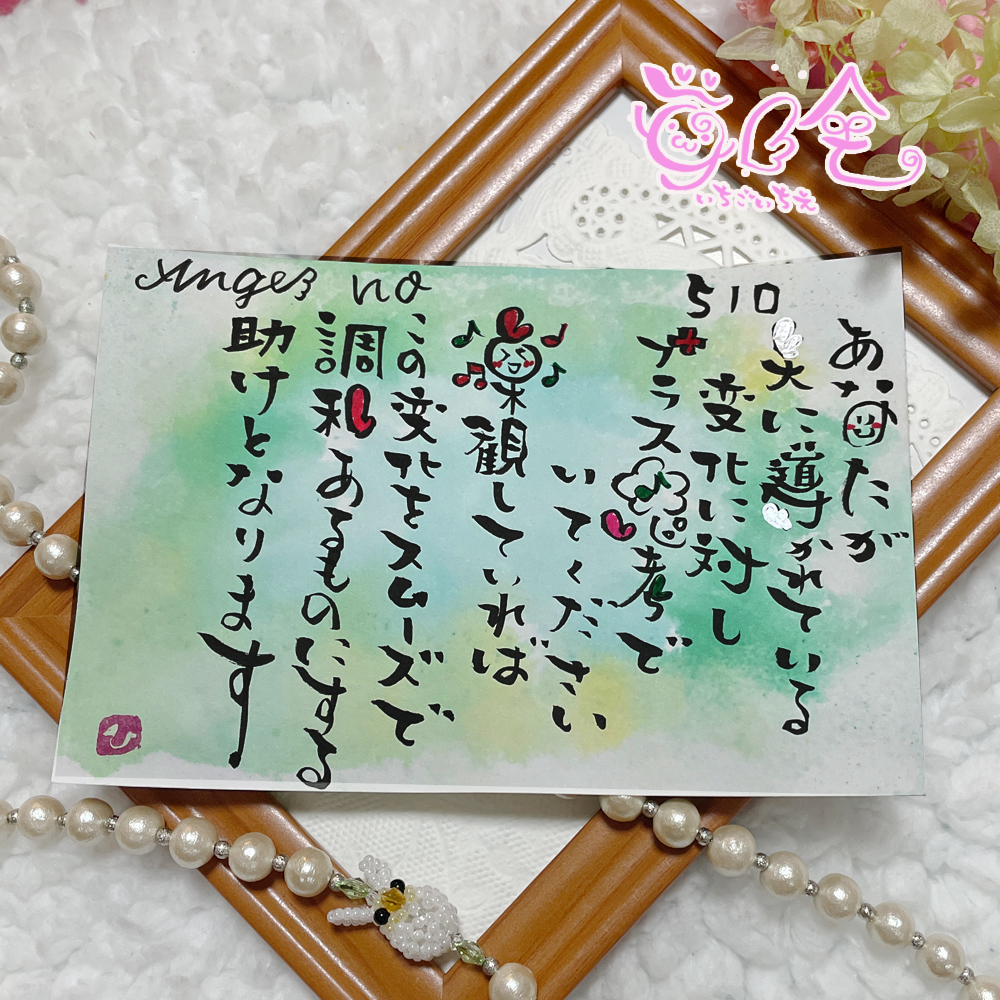 いちごいちえ
Angel no 510
あなたが
天に導かれている
変化に対し
プラス思考で
いてください
楽観していれば
この変化をスムーズで
調和あるものにする
助けとなります